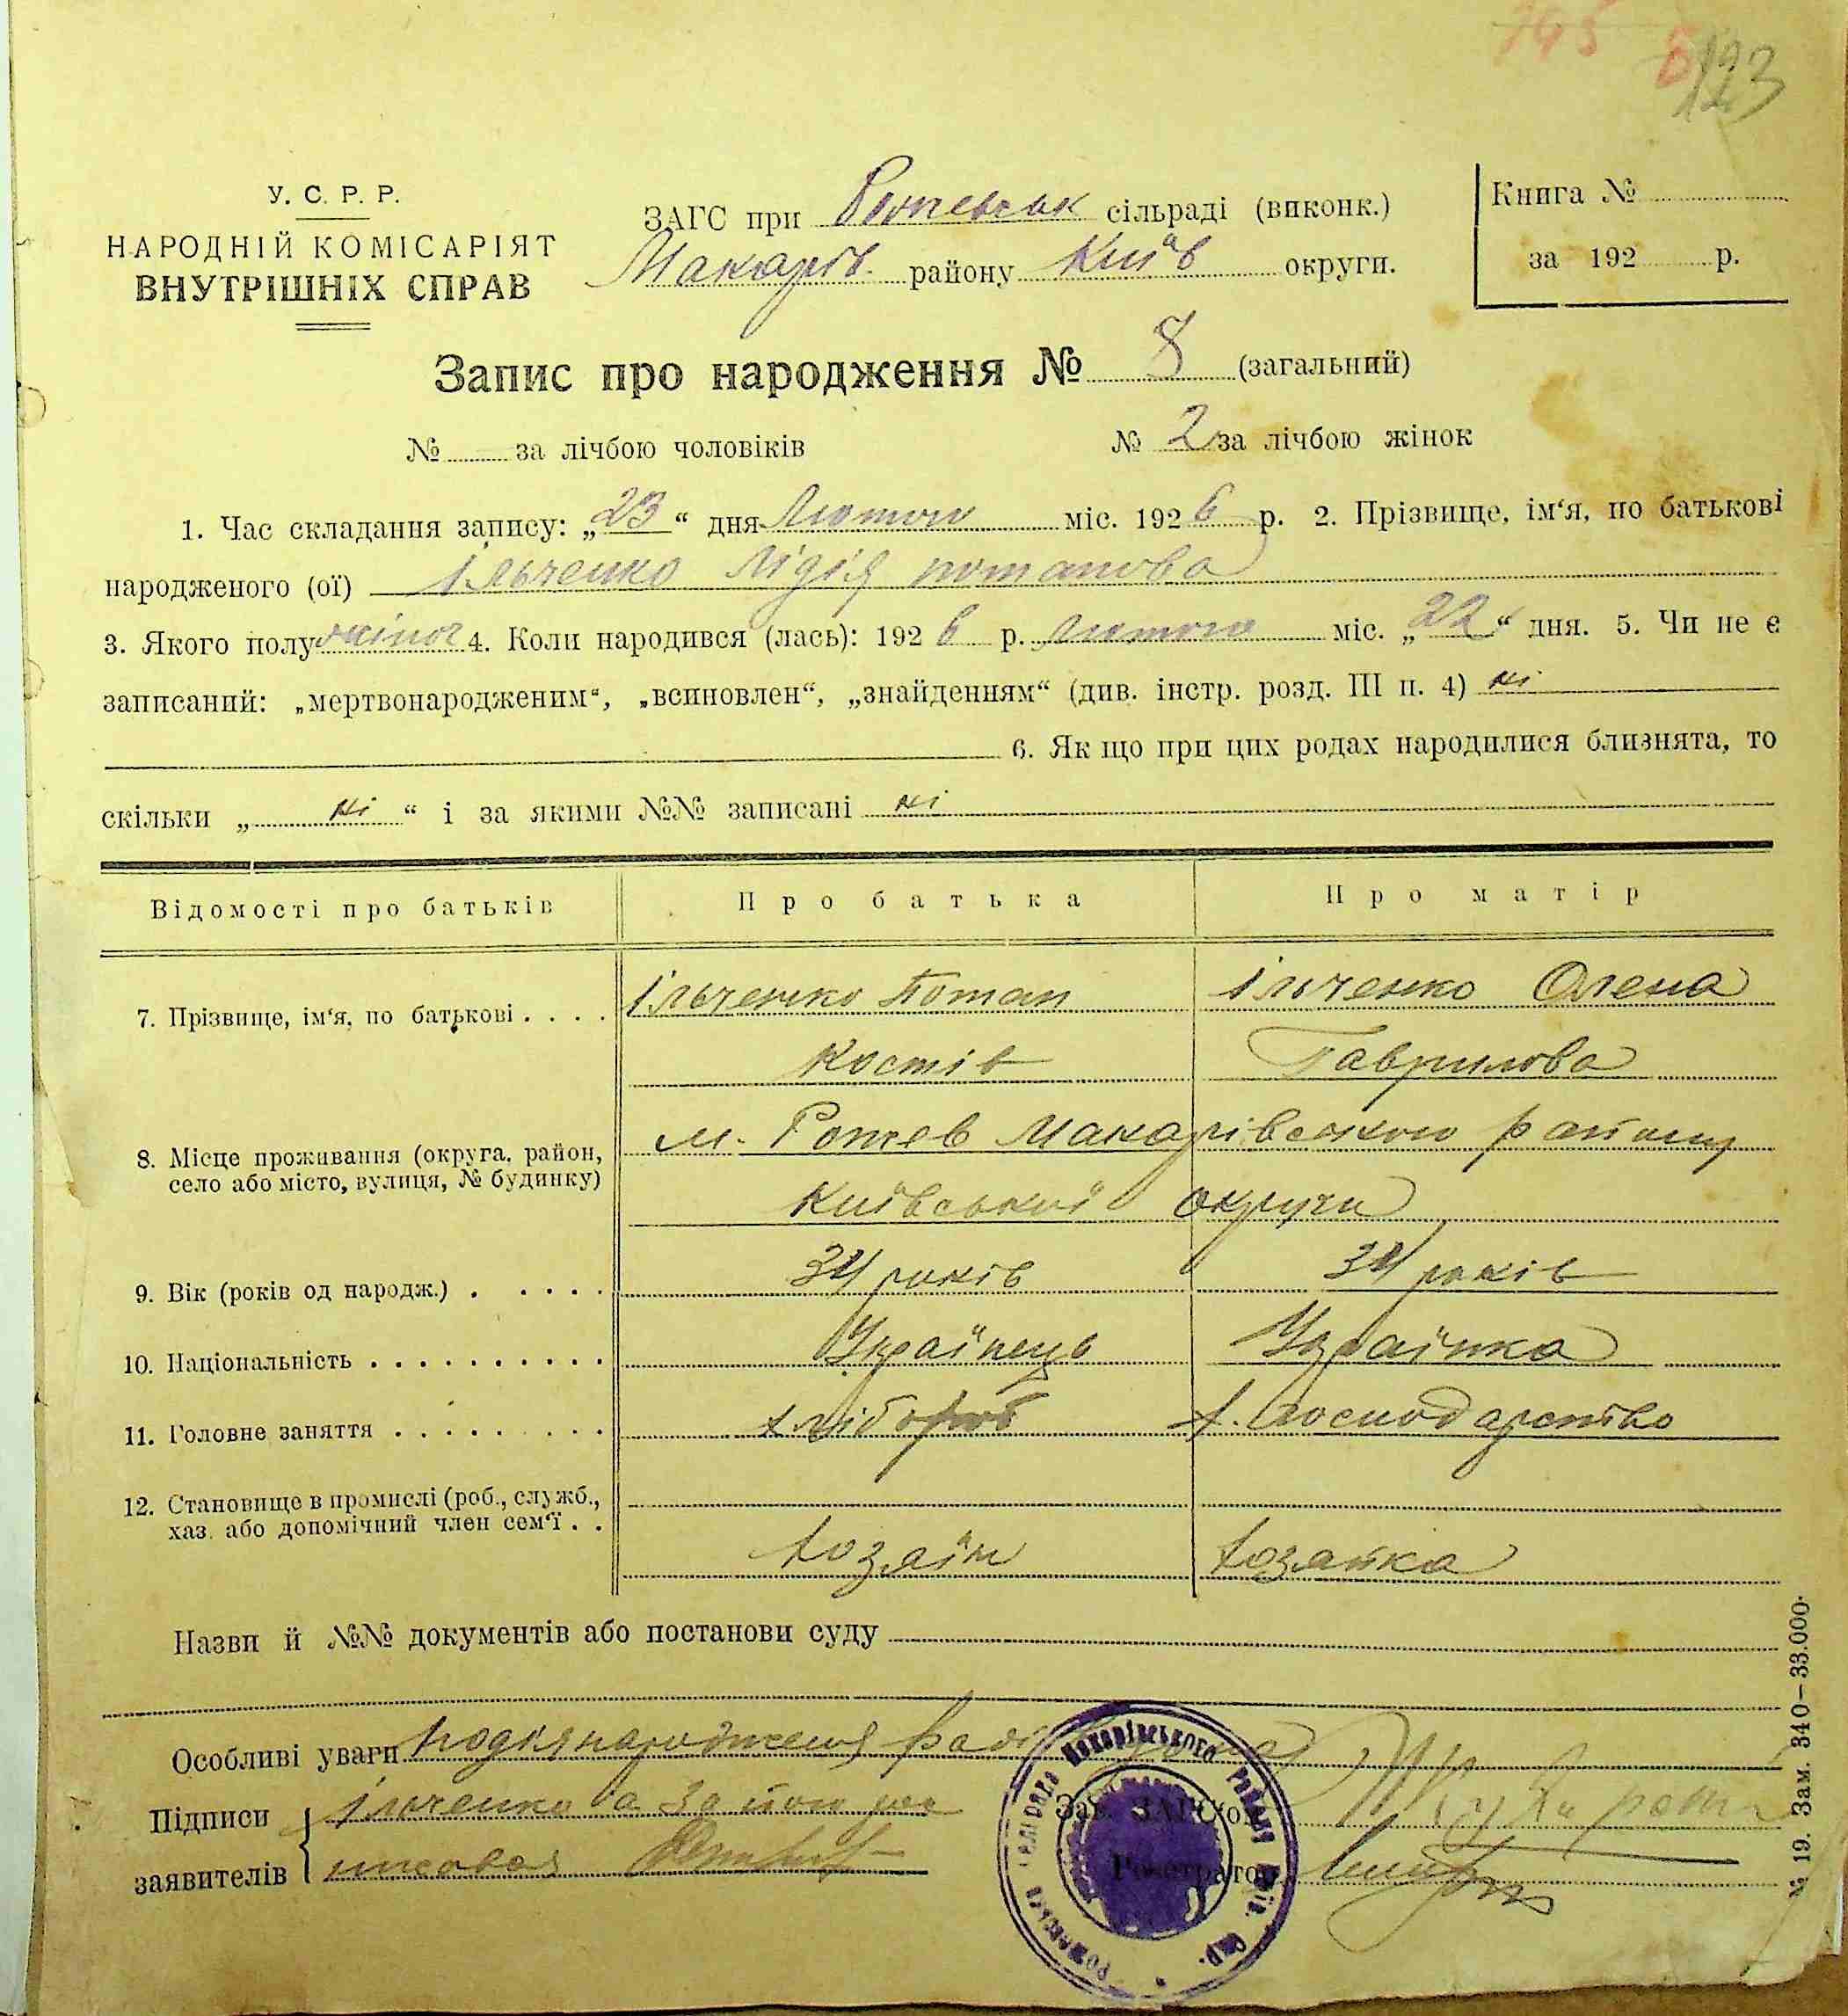 123
У. С. Р. Р.
НАРОДНІЙ КОМІСАРІЯТ
ВНУТРІШНІХ СПРАВ
ЗАГС при сільраді (виконк.)
Макарів. району Київ округи.
Книга №
за 192 р.
Запис про народження № 8 (загальний)
№ — за лічбою чоловіків № 2 за лічбою жінок
1. Час складання запису: „23“ дня Лютого міс. 1926 р. 2. Прізвище, ім‘я, по батькові
народженого (ої) Ільченко Лідія потапова
3. Якого полу жіноч 4. Коли народився (лась): 1926 р. лютого міс. „22“ дня. 5. Чи не є
записаний: „мертвонародженим“, „всиновлен“, „знайденням“ (див. інстр. розд. III п. 4) ні
6. Як що при цих родах народилися близнята, то
скільки „ ні “ і за якими №№ записані ні
Відомості про батьків Про батька Про матір
7. Прізвище, ім‘я, по батькові . . . . Ільченко Потап Ільченко Олена
Костів Гаврилова
8. Місце проживання (округа, район, м. Рожев Макарівського району
село або місто, вулиця, № будинку)
Київської округи
9. Вік (років од народж.) . . . . . 34 років 34 років
10. Національність . . . . . . . . . . Українець Українка
11. Головне заняття . . . . . . . . . хлібороб х. господарство
12. Становище в промислі (роб., служб.,
хаз. або допомічний член сем‘ї . . хозаїн хозайка
Назви й №№ документів або постанови суду
Особливі уваги
Підписи Ільченко а за його
заявителів
Зав. ЗАГС‘ом
Реєстратор
Макарівського Району
№ 19. Зам. 340—33.000.